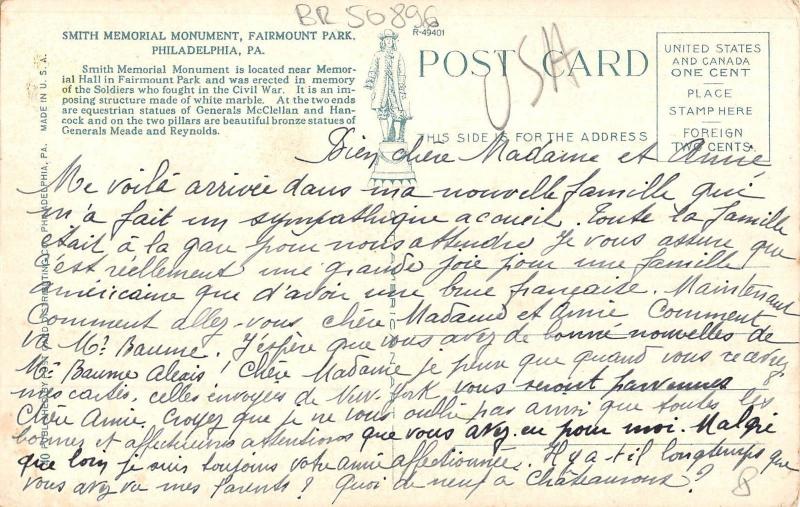 BR 50896
SMITH MEMORIAL MONUMENT, FAIRMOUNT PARK,
PHILADELPHIA, PA.
Smith Memorial Monument is located near Memor-
ial Hall in Fairmount Park and was erected in memory
of the Soldiers who fought in the Civil War. It is an im-
posing structure made of white marble. At the two ends
are equestrian statues of Generals McClellan and Han-
cock and on the two pillars are beautiful bronze statues of
Generals Meade and Reynolds.
R-49401
POST CARD
USA
THIS SIDE IS FOR THE ADDRESS
UNITED STATES
AND CANADA
ONE CENT
PLACE
STAMP HERE
FOREIGN
TWO CENTS
MADE IN U. S. A.
PUBLISHED BY POST CARD DISTRIBUTING CO., PHILADELPHIA, PA.
Bien chère Madame et Annie
Me voilà arrivée dans ma nouvelle famille qui
m'a fait un sympathique accueil. Toute la famille
était à la gare pour nous attendre. Je vous assure que
c'est réellement une grande joie pour une famille
américaine que d'avoir une brue française. Maintenant
Comment allez-vous chère Madame et Annie Comment
va Mr Baume. J'espère que vous avez de bonne nouvelles de
Mr Baume Alexis! Chère Madame je pense que quand vous recevrez
mes cartes, celles envoyées de New-York vous seront parvenues
Chère Annie, croyez que je ne vous oublie pas ainsi que toutes les
bonnes et affectueuses attentions que vous avez eu pour moi. Malgré
que loin je suis toujours votre amie affectionnée. Il y a t-il longtemps que
vous avez vu mes Parents? Quoi de neuf à Châteauroux?
8